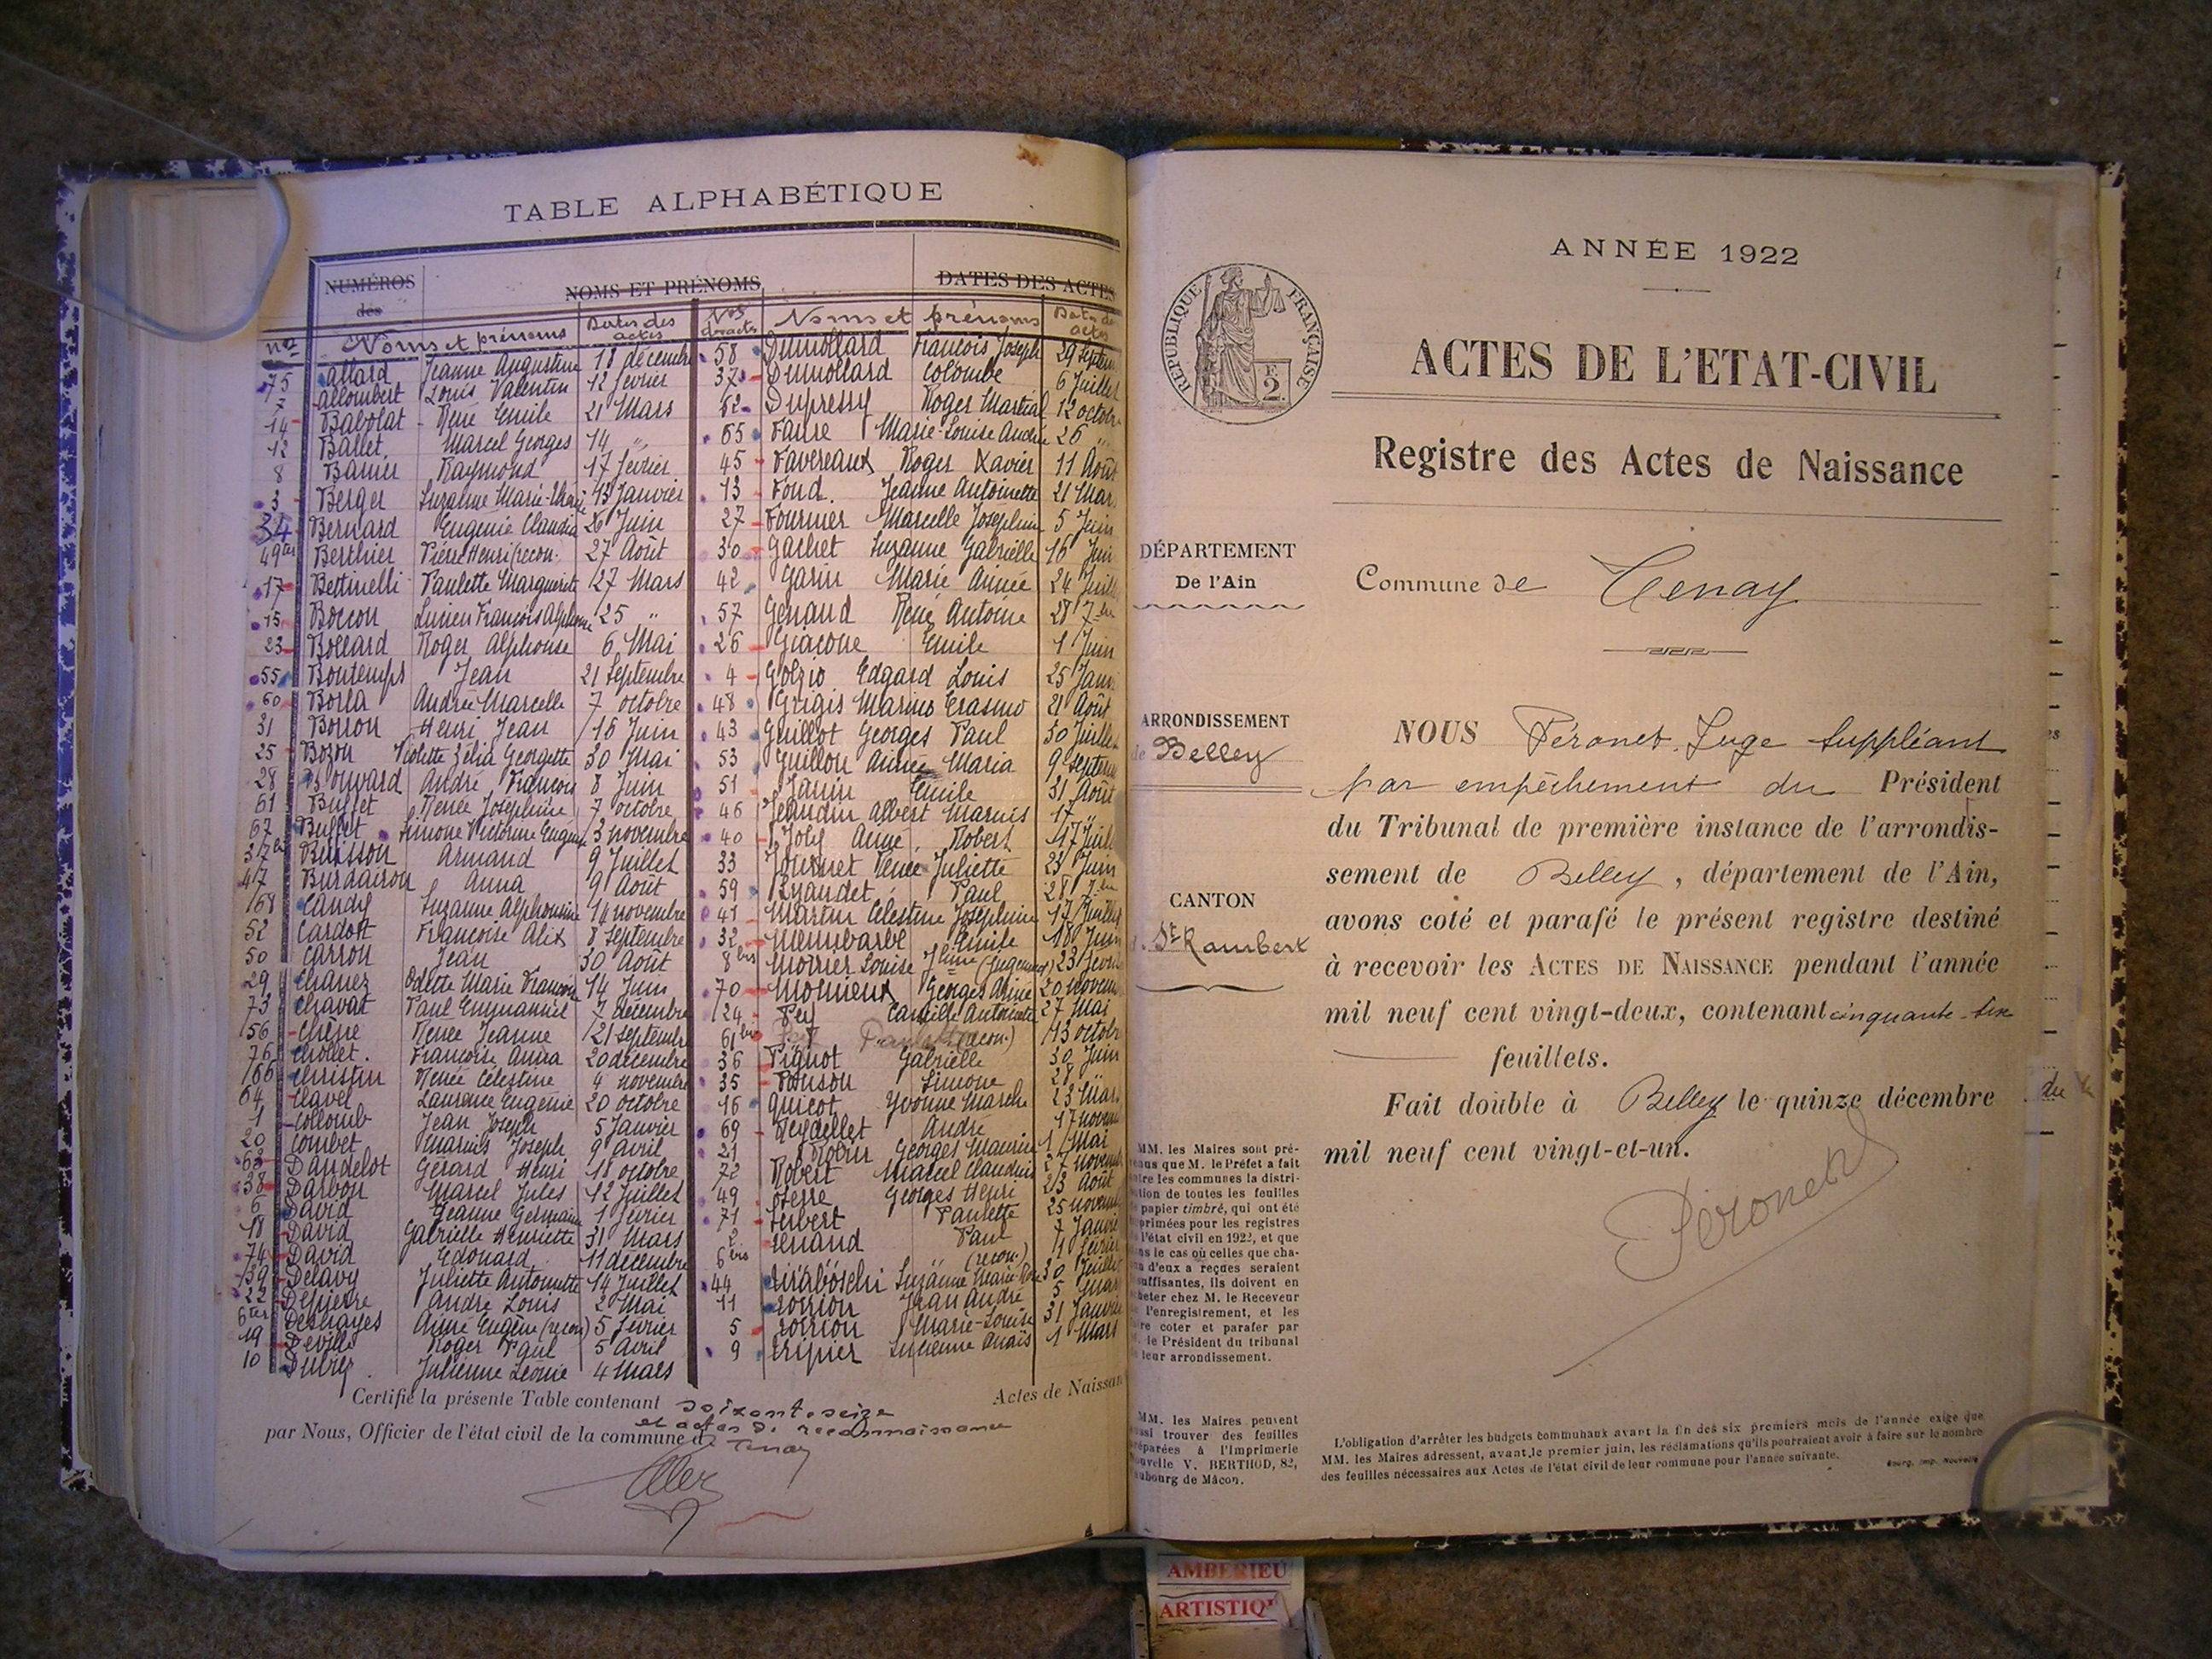 TABLE ALPHABÉTIQUE
NUMÉROS
des
NOMS ET PRÉNOMS
DATES DES ACTES
Nos Noms et prénoms Dates des actes
75 Allard Jeanne Augustine 18 décembre
7 Allombert Louis Valentin 12 février
14 Babolat René Emile 21 Mars
12 Ballet Marcel Georges 14 "
8 Raymond 17 février
3 Berger Suzanne Marie 13 Janvier
34 Bernard Eugénie Claudia 26 Juin
49ter Berthier Pierre Henri (recon. 27 Août
17 Bettinelli Paulette Marguerite 27 Mars
15 Boccon Lucien François Alphonse 25 "
23 Bollard Roger Alphonse 6 Mai
55 Bontemps Jean 21 Septembre
60 Andrée Marcelle 7 octobre
31 Borron Henri Jean 16 Juin
25 Bozon Violette Zélia Georgette 30 Mai
28 Bouvard André François 8 Juin
61 Buffet Renée Joséphine 7 octobre
67 Buffet Simone Victorine 3 novembre
37bis Buisson Armand 9 Juillet
47 Burdairon Anna 9 Août
68 Candy Suzanne Alphonsine 14 novembre
52 Françoise Alix 8 septembre
50 Carron Jean 30 Août
29 Odette Marie Françoise 14 Juin
73 Chavat Paul Emmanuel 7 décembre
56 Chêne Renée Jeanne 21 septembre
76 Chollet Françoise Anna 20 décembre
66 Christin Renée Célestine 4 novembre
64 Clavel Laurence Eugénie 20 octobre
1 Collomb Jean Joseph 5 Janvier
20 Combet Marius Joseph 9 Avril
63 Dandelot Gérard Henri 18 octobre
38 Darbon Marcel Jules 12 Juillet
6 David Jeanne Germaine 1 février
18 David Gabrielle Henriette 31 Mars
74 David Edouard 11 décembre
39 Delavy Juliette Antoinette 14 Juillet
22 Depierre André Louis 2 Mai
6ter Deshayes Aimé Eugène (recon) 5 février
19 Deville Roger Paul 5 Avril
10 Julienne Léonie 4 Mars
Nos des actes Noms et prénoms Dates des actes
58 Dumollard François Joseph 29 Septem
37 Dumollard Colombe 6 Juillet
62 Dupressy Roger Martial 12 octobre
65 Faure Marie-Louise Andrée 26 "
45 Favereaux Roger Xavier 11 Août
13 Fond Jeanne Antoinette 21 Mar
27 Fournier Marcelle Joséphine 5 Juin
30 Gachet Suzanne Gabrielle 16 Juin
42 Garin Marie Aimée 24 Juill
57 Genand René Antoine 28 7bre
26 Giacone Emile 1 Juin
4 Golzio Edgard Louis 25 Janv
48 Grigis Marino Erasmo 21 Août
43 Guillot Georges Paul 30 Juillet
53 Guillon Aimée Maria 9 Septem
51 Janin Emile 31 Août
46 Jeandin Albert Marius 17 "
40 Joly Aimé Robert 17 Juill
33 Renée Juliette 23 Juin
59 Paul 28 7bre
41 Martin Célestine Joséphine 17 Juillet
32 Emile 18 Juin
8bis Louise (Jugement) 23 février
70 Monieux Georges Aimé 20 Novem
24 Pey Camille Antoinette 27 Mai
61bis (recon.) 13 octobr
36 Pignot Gabrielle 30 Juin
35 Ponson Simone 28 "
16 Quicot Yvonne Marcelle 23 Mars
69 Reydellet André 17 novem
21 Robin Georges Maurice 1 Mai
72 Robert Marcel Claudius 27 novem
49 Serre Georges Henri 23 Août
71 Paulette 25 novem
2 Paul 7 Janvi
6bis " (recon.) 11 février
44 Suzanne Marie-Rose 30 Juillet
11 Jean André 5 Mars
5 Marie-Louise 31 Janvier
9 Tripier Lucienne Anaïs 1 Mars
Certifié la présente Table contenant soixante-seize Actes de Naissan
et actes de reconnaissance
par Nous, Officier de l'état civil de la commune de Tenay
ANNÉE 1922
RÉPUBLIQUE FRANÇAISE
2.
ACTES DE L'ETAT-CIVIL
Registre des Actes de Naissance
DÉPARTEMENT
De l'Ain
Commune de Tenay
ARRONDISSEMENT
de Belley
CANTON
St Rambert
NOUS Péronet, Juge Suppléant
par empêchement du Président
du Tribunal de première instance de l'arrondis-
sement de Belley, département de l'Ain,
avons coté et parafé le présent registre destiné
à recevoir les ACTES DE NAISSANCE pendant l'année
mil neuf cent vingt-deux, contenant cinquante-six
feuillets.
Fait double à Belley le quinze décembre
mil neuf cent vingt-et-un.
Péronet
MM. les Maires sont pré-
venus que M. le Préfet a fait
tre les communes la distri-
tion de toutes les feuilles
papier timbré, qui ont été
primées pour les registres
l'état civil en 1922, et que
ns le cas où celles que cha-
n d'eux a reçues seraient
suffisantes, ils doivent en
heter chez M. le Receveur
l'enregistrement, et les
re coter et parafer par
le Président du tribunal
leur arrondissement.
MM. les Maires peuvent
ussi trouver des feuilles
réparées à l'Imprimerie
ouvelle V. BERTHOD, 82,
aubourg de Mâcon.
L'obligation d'arrêter les budgets communaux avant la fin des six premiers mois de l'année exige que
MM. les Maires adressent, avant le premier juin, les réclamations qu'ils pourraient avoir à faire sur le nombre
des feuilles nécessaires aux Actes de l'état civil de leur commune pour l'année suivante.
Bourg, Imp. Nouvelle
du
AMBERIEU
ARTISTIQ